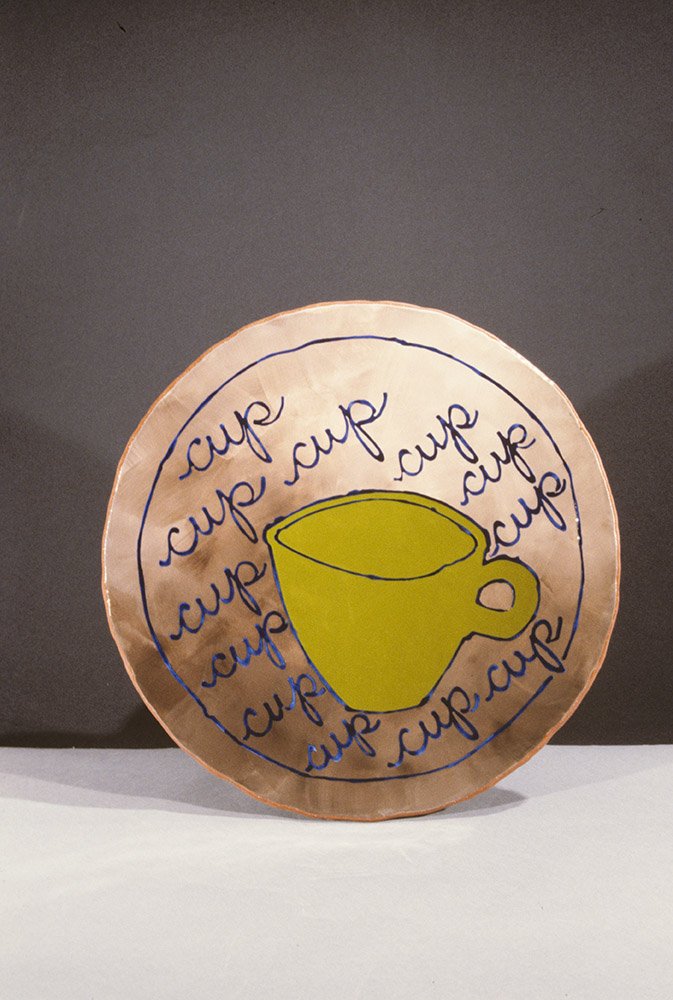 cup cup cup
cup
cup cup
cup
cup
cup cup
cup cup